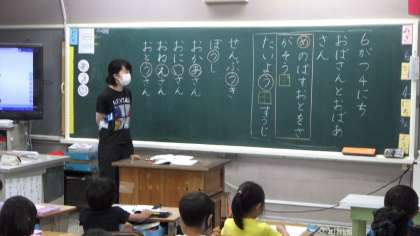 6がつ4にち
おばさんとおばあ
さん
めのばすおとをさ
がそう
たいよう
すうじ
せんぷうき
ぼうし
おかあさん
おにいさん
おねえさん
おとうさん